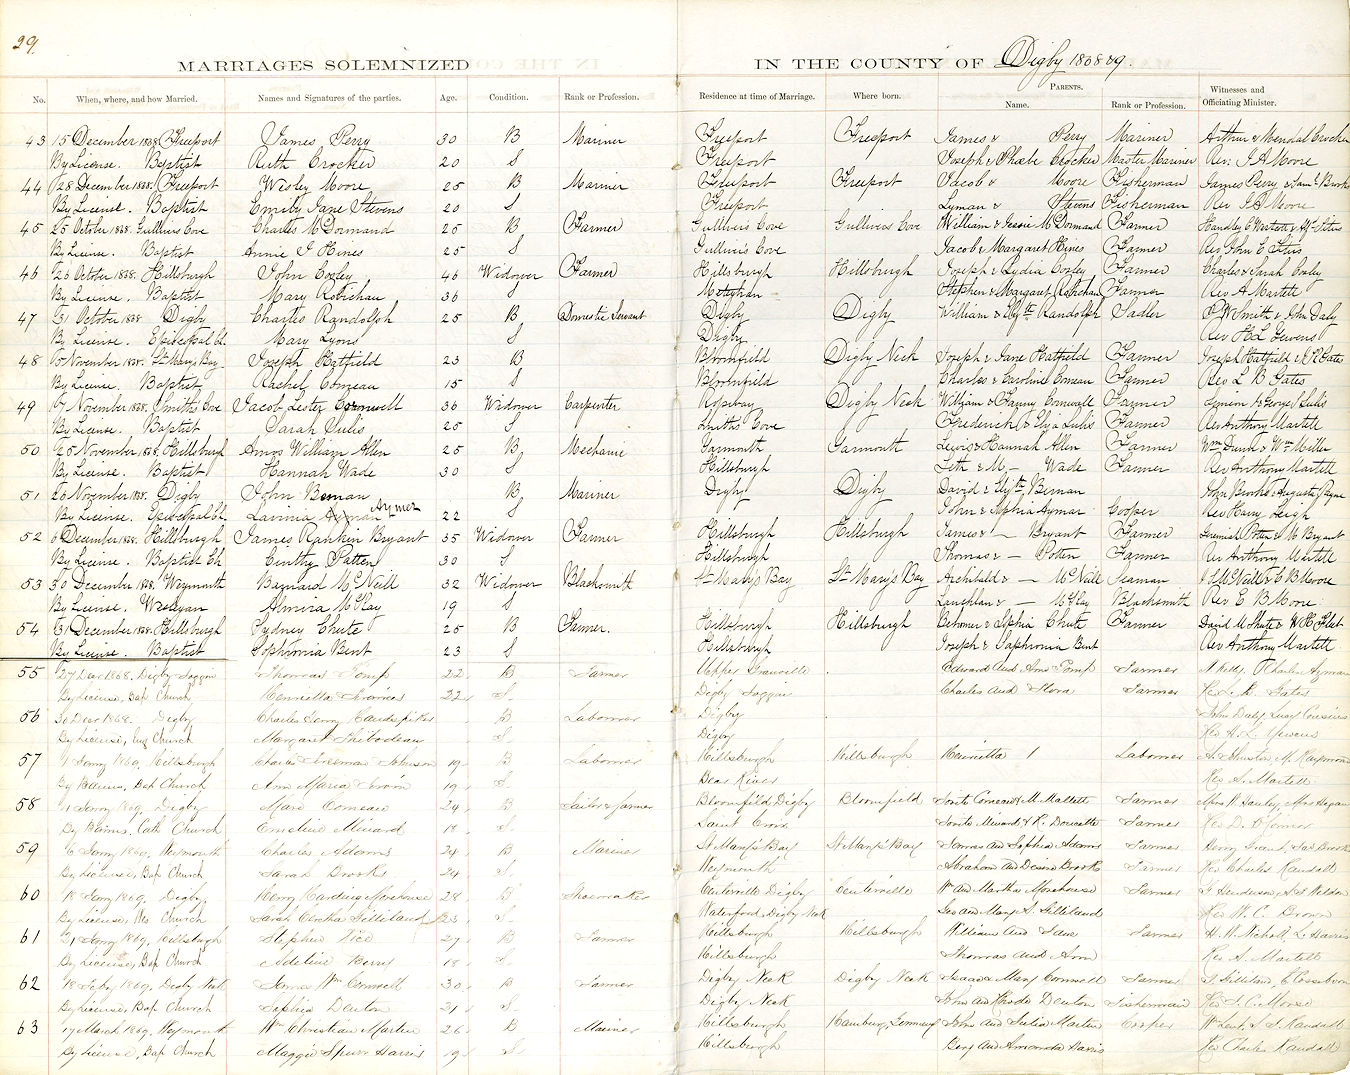 29
MARRIAGES SOLEMNIZED IN THE COUNTY OF Digby 1868 69.
No. When, where, and how Married. Names and Signatures of the parties. Age. Condition. Rank or Profession. Residence at time of Marriage. Where born. PARENTS. Name. Rank or Profession. Witnesses and Officiating Minister.
43 15 December 1868 Freeport James Perry 30 B Mariner Freeport Freeport James & Perry Mariner Arthur & Mendal Crocker
By License. Baptist Ruth Crocker 20 S Freeport Joseph & Phœbe Crocker Master Mariner Rev. J A Moore
44 28 December 1868. Freeport Wesley Moore 25 B Mariner Freeport Freeport Jacob & Moore Fisherman James Perry &
By License. Baptist Emily Jane Stevens 20 S Freeport Lyman & Stevens Fisherman Rev J A Moore
45 25 October 1868 Gullivers Cove Charles McDormand 25 B Farmer Gullivers Cove Gullivers Cove William & Jessie McDormand Farmer Handley C Westcott &
By License. Baptist Annie J Hines 25 S Gulliver's Cove Jacob & Margaret Hines Farmer Rev John C
46 26 October 1868. Hillsburgh John Cozley 46 Widover Farmer Hillsburgh Hillsburgh Joseph & Lydia Cozley Farmer Charles & Sarah Cozley
By License. Baptist Mary Robichau 36 S Meteghan Stephen & Margaret Robichau Farmer Rev A Martell
47 31 October 1868 Digby Charles Randolph 25 B Domestic Servant Digby Digby William & Elizth Randolph Sadler Smith & John Daly
By License. Episcopal Ch. Mary Lyons S Digby Rev H L
48 5 November 1868. St Marys Bay Joseph Hatfield 23 B Bloomfield Digby Neck Joseph & Jane Hatfield Farmer Joseph Hatfield & Gates
By License. Baptist Rachel Comeau 15 S Bloomfield Charles & Caroline Comeau Farmer Rev L B Gates
49 7 November 1868. Smiths Cove Jacob Lester Cornwell 36 Widover Carpenter Digby Neck William & Fanny Cornwell Farmer
By License. Baptist Sarah Sulis 25 S Smiths Cove Frederick & Eliza Sulis Farmer Rev Anthony Martell
50 25 November 1868, Hillsburgh Amos William Allen 25 B Mechanic Yarmouth Yarmouth Lewis & Hannah Allen Farmer Wm Dunn & Wm Miller
By License. Baptist Hannah Wade 30 S Hillsburgh Seth & M, — Wade Farmer Rev Anthony Martell
51 26 November 1868. Digby John Beman B Mariner Digby Digby David & Elizth Beman John Brooks & Augusta Payne
By License. Episcopal Ch. Lavinia Aymar Aymer 22 S John & Sophia Aymar Cooper Rev Harry Leigh
52 6 December 1868. Hillsburgh James Rankin Bryant 35 Widover Farmer Hillsburgh Hillsburgh James & — Bryant Farmer Jeremiah Potter & M Bryant
By License. Baptist Ch Cinthy Potten 30 S Hillsburgh Thomas & — Potten Farmer Rev Anthony Martell
53 30 December 1868. Weymouth Baynard McNeill 32 Widover Blacksmith St Mary's Bay St Mary's Bay Archibald & — McNeill Seaman McNeill & C B Moore
By License. Wesleyan Almira McKay 19 S Lauchlan & — McKay Blacksmith Rev E B Moore
54 31 December 1868. Hillsburgh Sydney Chute 25 B Farmer. Hillsburgh Hillsburgh Behomer & Sophia Chute Farmer David M Chute &
By License. Baptist Sophronia Bent 23 S Hillsburgh Joseph & Saphronia Bent Rev Anthony Martell
55 27 Decr 1868. Digby Joggin Thomas Pomp 22 B Farmer Upper Granville Edward and Ann Pomp Farmer Charles Aymar
By License, Bap Church Henrietta 22 S. Digby Joggin Charles and Flora Farmer Rev L. B Gates
56 30 Decr 1868. Digby Charles Henry B Labourer Digby John Daly, Lucy Cousins
By License, Eng Church Margaret Thibodeau S. Digby Rev
57 1 Janry 1869, Hillsburgh Charles Freeman Johnson 19 B Labourer Hillsburgh Hillsburgh Henrietta Labourer
By Banns, Bap Church Ann Maria 19 S. Bear River Rev A. Martell
58 1 Janry 1869, Digby Marc Comeau 24 B Sailor & farmer Bloomfield, Digby Bloomfield Comeau & M. Mallett Farmer
By Banns. Cath Church Emeline Minard 18 S. Saint Croix Minard & R. Doucette Farmer Rev D.
59 6 Janry 1869, Weymouth Charles Adams 24 B Mariner St Mary's Bay St Mary's Bay James and Sophia Adams Farmer Henry Grant, Brooks
By License, Bap Church Sarah Brooks 24 S. Weymouth Abraham and Brooks Farmer Rev Charles Randall
60 18 Janry 1869, Digby Henry Harding Morehouse 28 B Shoemaker Centerville Digby Centerville Wm and Martha Morehouse Farmer
By License, Wes Church Sarah Gilliland 23 S. Waterford, Digby Neck Geo and Mary S. Gilliland Rev W. C. Brown
61 21 Janry 1869, Hillsburgh Stephen Rice 27 B Farmer Hillsburgh Hillsburgh William and Farmer H. W. Nichols, L. Harris
By License, Bap Church Adeline Berry 18 S. Hillsburgh Thomas and Ann Rev A. Martell
62 18 Feby 1869, Digby Neck James Wm Cornwell 30 B Farmer Digby Neck Digby Neck Isaac & Mary Cornwell Farmer Gilliland,
By License, Bap Church Sophia Denton 21 S. Digby Neck John and Denton Fisherman Rev J. C. Morse
63 17 March 1869, Weymouth Wm Christian Martin 26 B Mariner Hillsburgh Hamburg, Germany John and Julia Martin Cooper Wm Randall
By License, Bap Church Maggie Harris 19 S. Hillsburgh Benj and Amanda Harris Rev Charles Randall